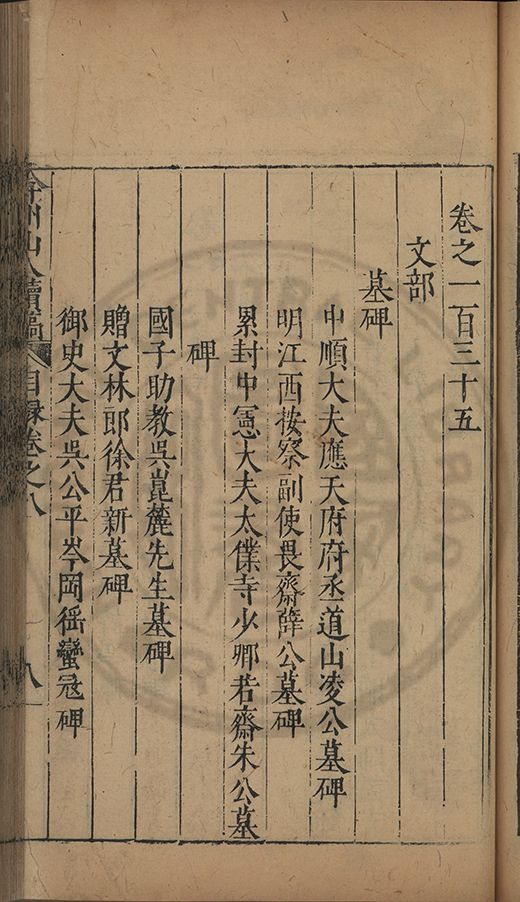 卷之一百三十五
文部
墓碑
中順大夫應天府府丞道山凌公墓碑
明江西按察副使畏齋薛公墓碑
累封中憲大夫太僕寺少卿若齋朱公墓
碑
國子助教吳崑麓先生墓碑
贈文林郎徐君新墓碑
御史大夫吳公平岑岡徭蠻寇碑
弇州山人續稿 目録卷之八 八